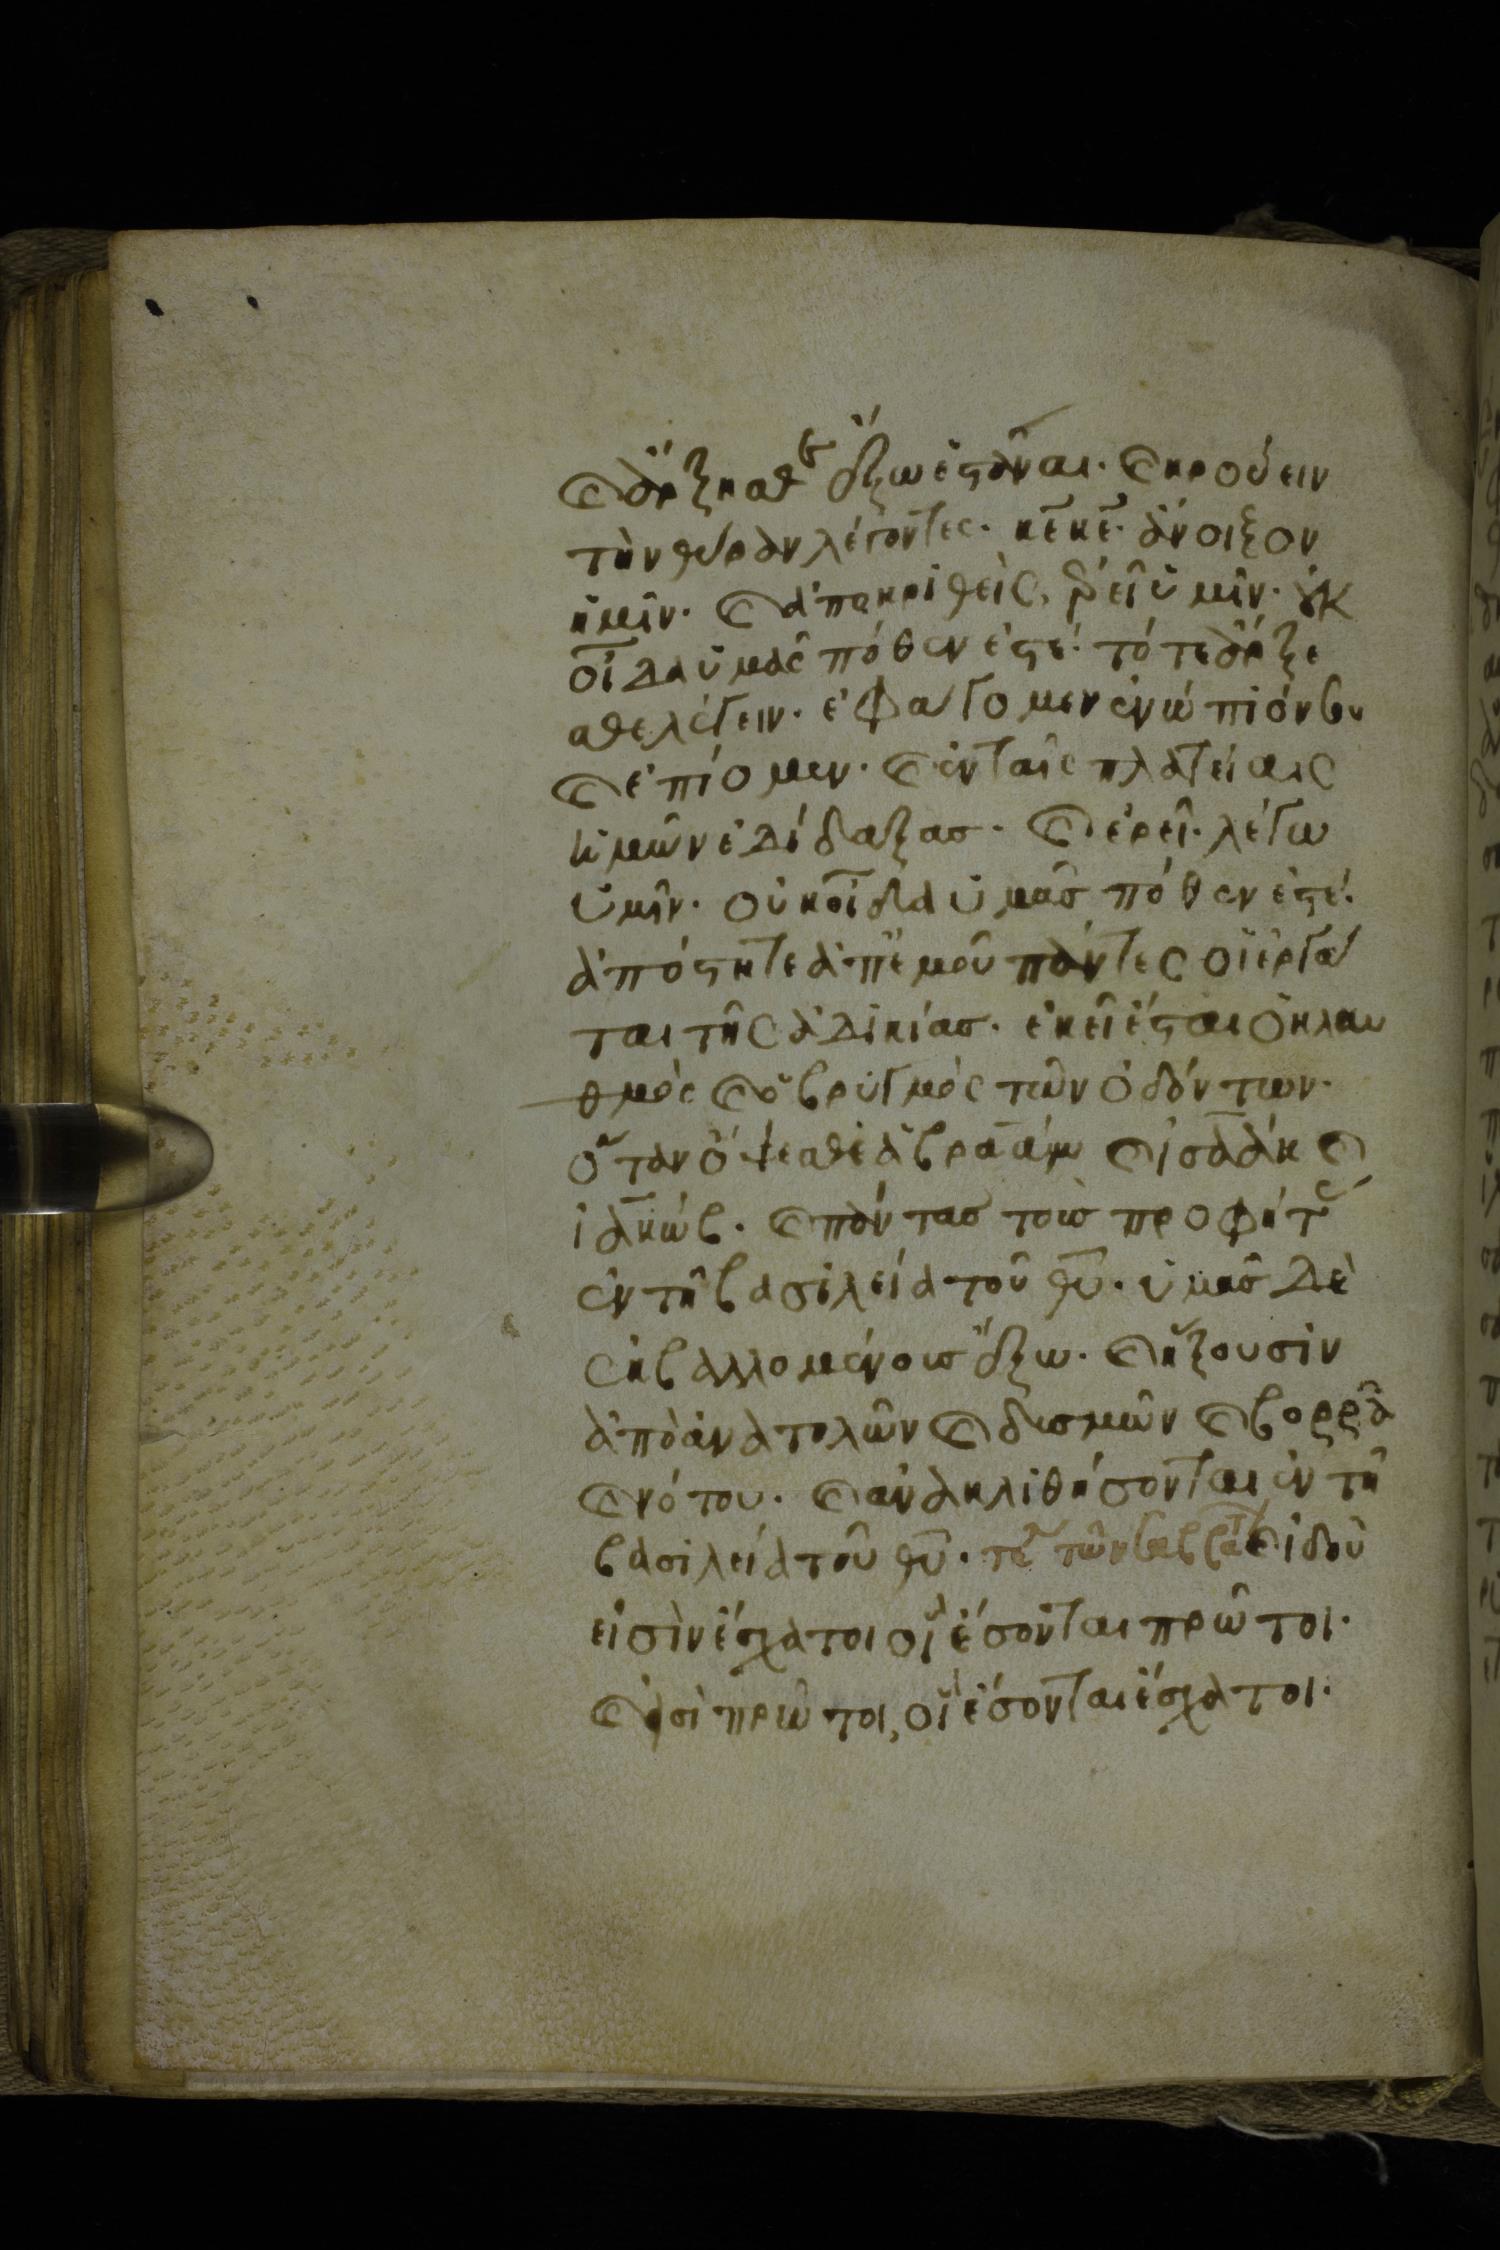 ϗ ἄρξησθε ἔξω ἑστάναι· ϗ κρούειν
τὴν θύραν λέγοντες· κ̅ε̅ κ̅ε̅· ἄνοιξον
ἡμῖν· ϗ ἀποκριθεὶς, ἐρεῖ ὑμῖν· οὐκ
οἶδα ὑμᾶς πόθεν ἐστέ· τότε ἄρξε
σθε λέγειν· ἐφάγομεν ἐνώπιόν σου
ϗ ἐπίομεν· ϗ ἐν ταῖς πλατείαις
ἡμῶν ἐδίδαξας· ϗ ἐρεῖ· λέγω
ὑμῖν· οὐκ οἶδα ὑμᾶς πόθεν ἐστέ·
ἀπόστητε ἀπ' ἐμοῦ πάντες οἱ ἐργά
ται τῆς ἀδικίας· ἐκεῖ ἔσται ὁ κλαυ
θμὸς ϗ ὁ βρυγμὸς τῶν ὀδόντων·
ὅταν ὄψεσθε ἀβραὰμ ϗ ἰσαὰκ ϗ
ἰακώβ· ϗ πάντας τοὺς προφήτ
ἐν τῆ βασιλεία τοῦ θ̅υ̅· ὑμᾶς δὲ
ἐκβαλλομένους ἔξω· ϗ ἥξουσιν
ἀπὸ ἀνατολῶν ϗ δυσμῶν ϗ βορρᾶ
ϗ νότου· ϗ ἀνακλιθήσονται ἐν τῆ
βασιλεία τοῦ θ̅υ̅· ϗ ἰδοὺ
εἰσὶν ἔσχατοι οἳ ἔσονται πρῶτοι·
ϗ εἰσὶ πρῶτοι, οἳ ἔσονται ἔσχατοι·